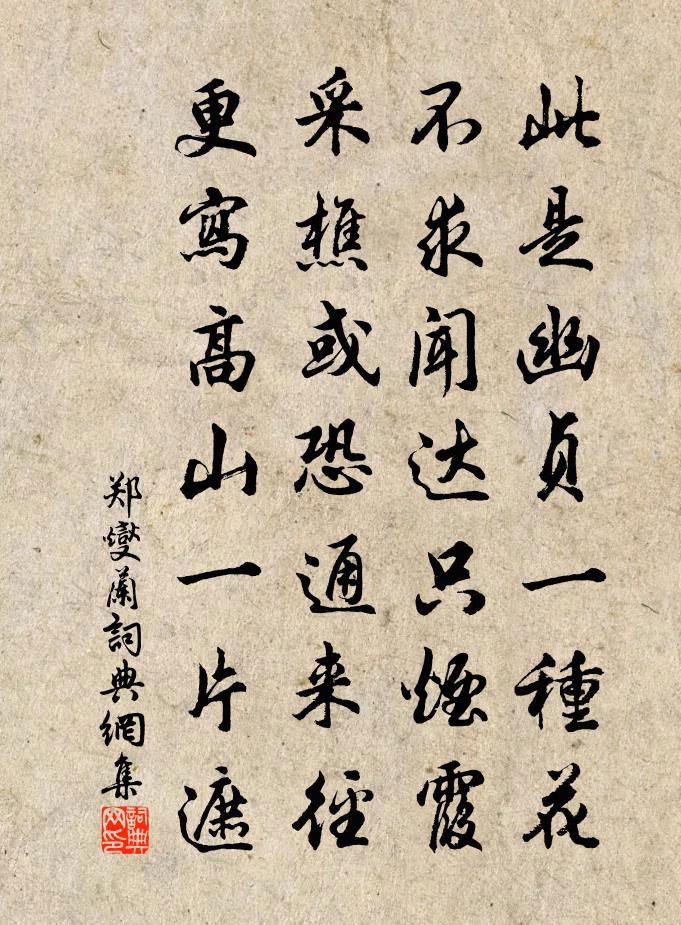 此是幽貞一種花
不求闻达只煙霞
采樵或恐通来徑
更寫高山一片遮
郑燮蘭詞典網集
詞典
网印